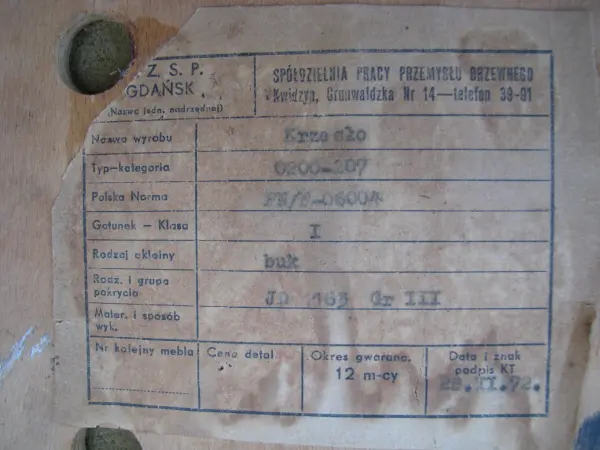 Z. S. P.
GDAŃSK
(Nazwa jedn. nadrzędnej)
SPÓŁDZIELNIA PRACY PRZEMYSŁU DRZEWNEGO
Kwidzyn, Grunwaldzka Nr 14—telefon 39-91
Nazwa wyrobu Krzesło
Typ-kategoria 0200-207
Polska Norma PN/F-06004
Gatunek — Klasa I
Rodzaj okleiny buk
Rodz. i grupa
pokrycia JD 163 Gr III
Mater. i sposób
wyk.
Nr kolejny mebla
Cena detal.
Okres gwaranc.
12 m-cy
Data i znak
podpis KT
28.II.72.